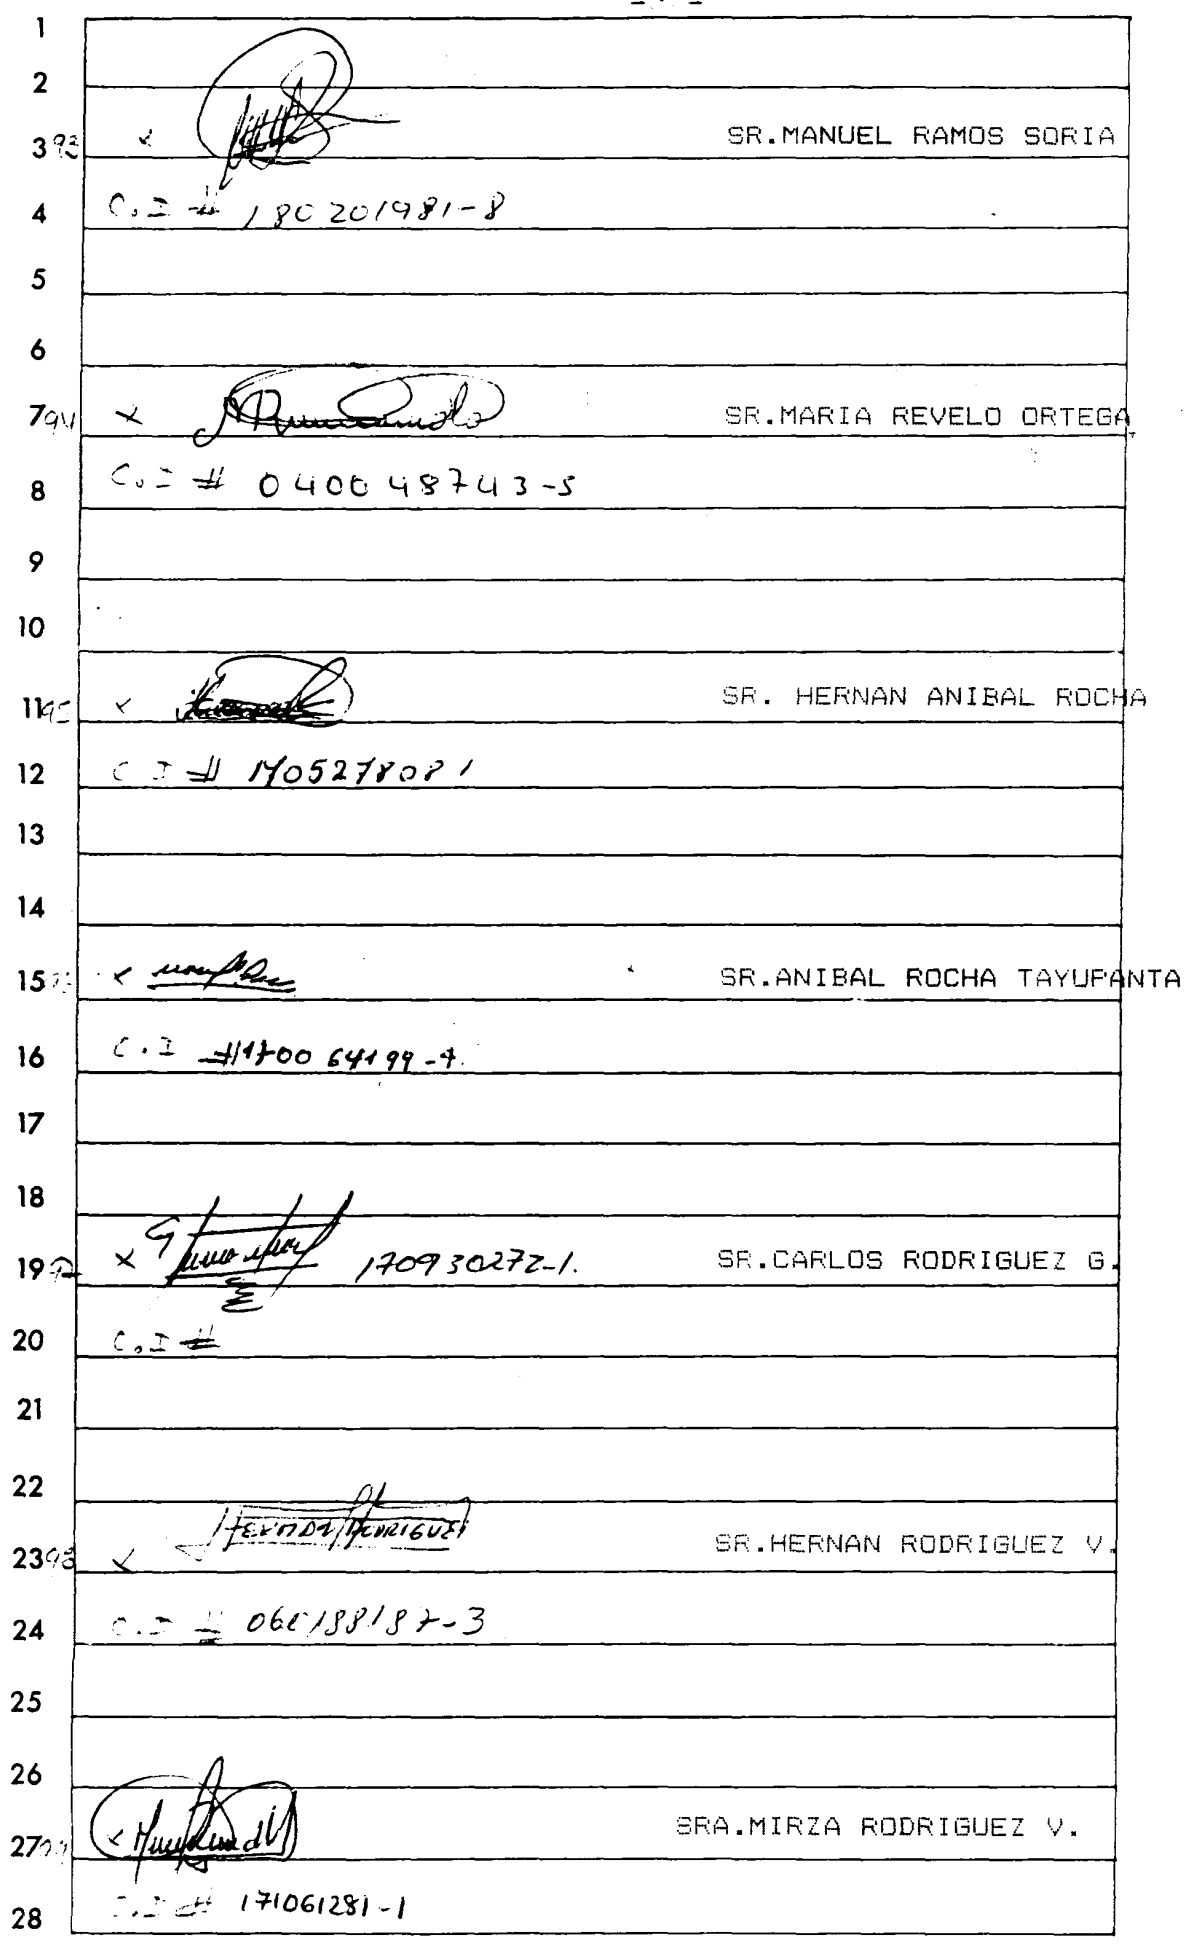 1
2
3 93 x SR.MANUEL RAMOS SORIA
4 C.I # 180201981-8
5
6
7 94 x SR.MARIA REVELO ORTEGA
8 C.I # 040048743-5
9
10
11 95 x SR. HERNAN ANIBAL ROCHA
12 C.I # 1705278081
13
14
15 x SR.ANIBAL ROCHA TAYUPANTA
16 C.I #170064199-7
17
18
19 x 170930272-1. SR.CARLOS RODRIGUEZ G.
20 C.I #
21
22
23 98 x HERNAN RODRIGUEZ SR.HERNAN RODRIGUEZ V.
24 C.I # 060188187-3
25
26
27 x SRA.MIRZA RODRIGUEZ V.
28 C.I # 171061281-1